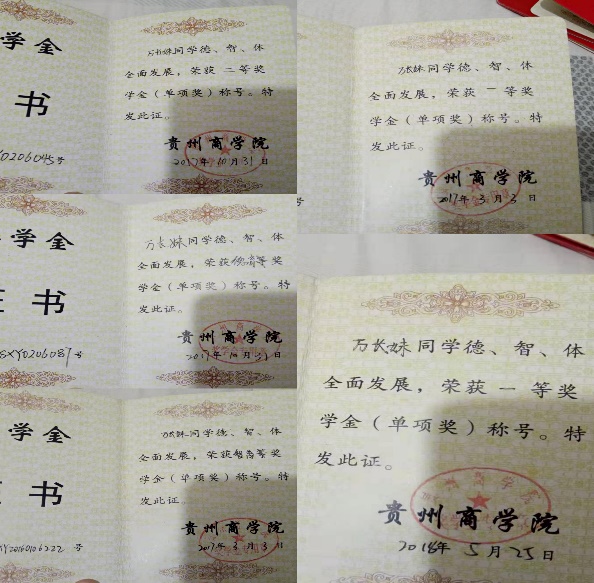 学金
书
Y0206045号
万长妹同学德、智、体
全面发展，荣获 二等奖
学金（单项奖）称号。特
发此证。
贵州商学院
2017年10月31日
万长妹同学德、智、体
全面发展，荣获 一等奖
学金（单项奖）称号。特
发此证。
贵州商学院
2017年3月3日
学金
证书
SXY0206087号
万长妹同学德、智、体
全面发展，荣获德育等奖
学金（单项奖）称号。特
发此证。
贵州商学院
2017年10月31日
学金
证书
XY20160106222号
万长妹同学德、智、体
全面发展，荣获智育等奖
学金（单项奖）称号。特
发此证。
贵州商学院
2017年3月3日
万长妹同学德、智、体
全面发展，荣获 一等奖
学金（单项奖）称号。特
发此证。
贵州商学院
2018年5月25日